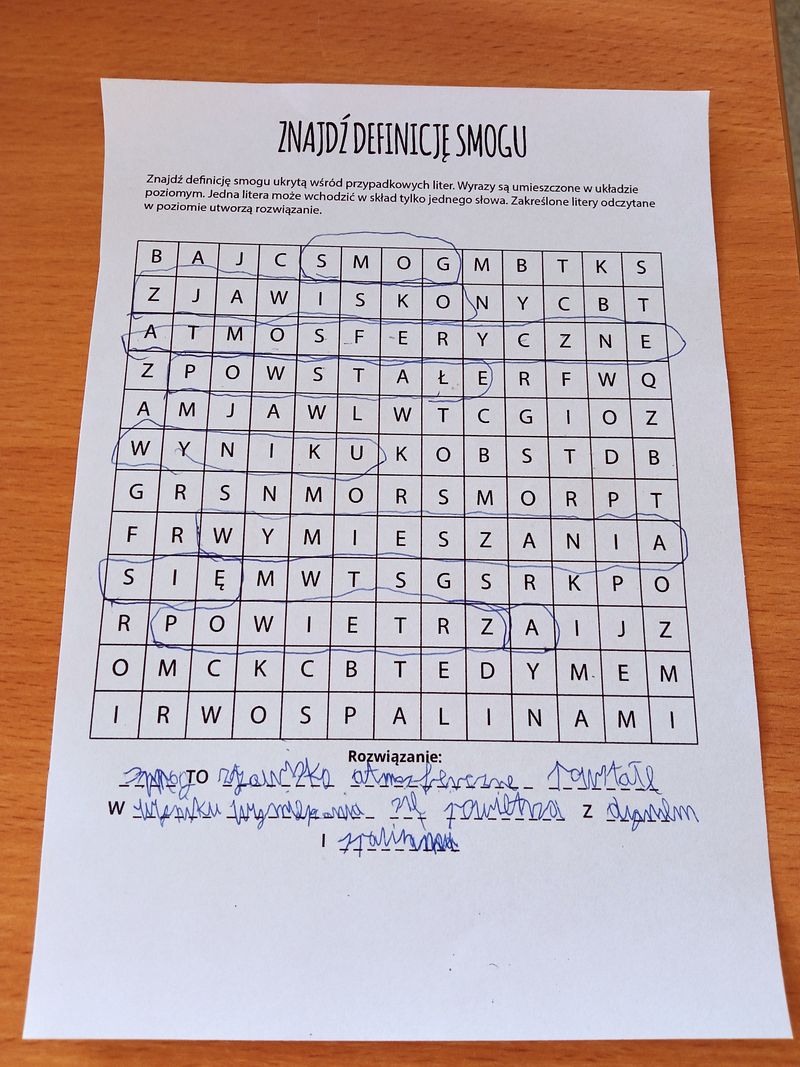 ZNAJDŹ DEFINICJĘ SMOGU
Znajdź definicję smogu ukrytą wśród przypadkowych liter. Wyrazy są umieszczone w układzie
poziomym. Jedna litera może wchodzić w skład tylko jednego słowa. Zakreślone litery odczytane
w poziomie utworzą rozwiązanie.
B A J C S M O G M B T K S
Z J A W I S K O N Y C B T
A T M O S F E R Y C Z N E
Z P O W S T A Ł E R F W Q
A M J A W L W T C G I O Z
W Y N I K U K O B S T D B
G R S N M O R S M O R P T
F R W Y M I E S Z A N I A
S I Ę M W T S G S R K P O
R P O W I E T R Z A I J Z
O M C K C B T E D Y M E M
I R W O S P A L I N A M I
Rozwiązanie:
smog TO zjawisko atmosferyczne powstałe
W wyniku się powietrza Z dymem
I